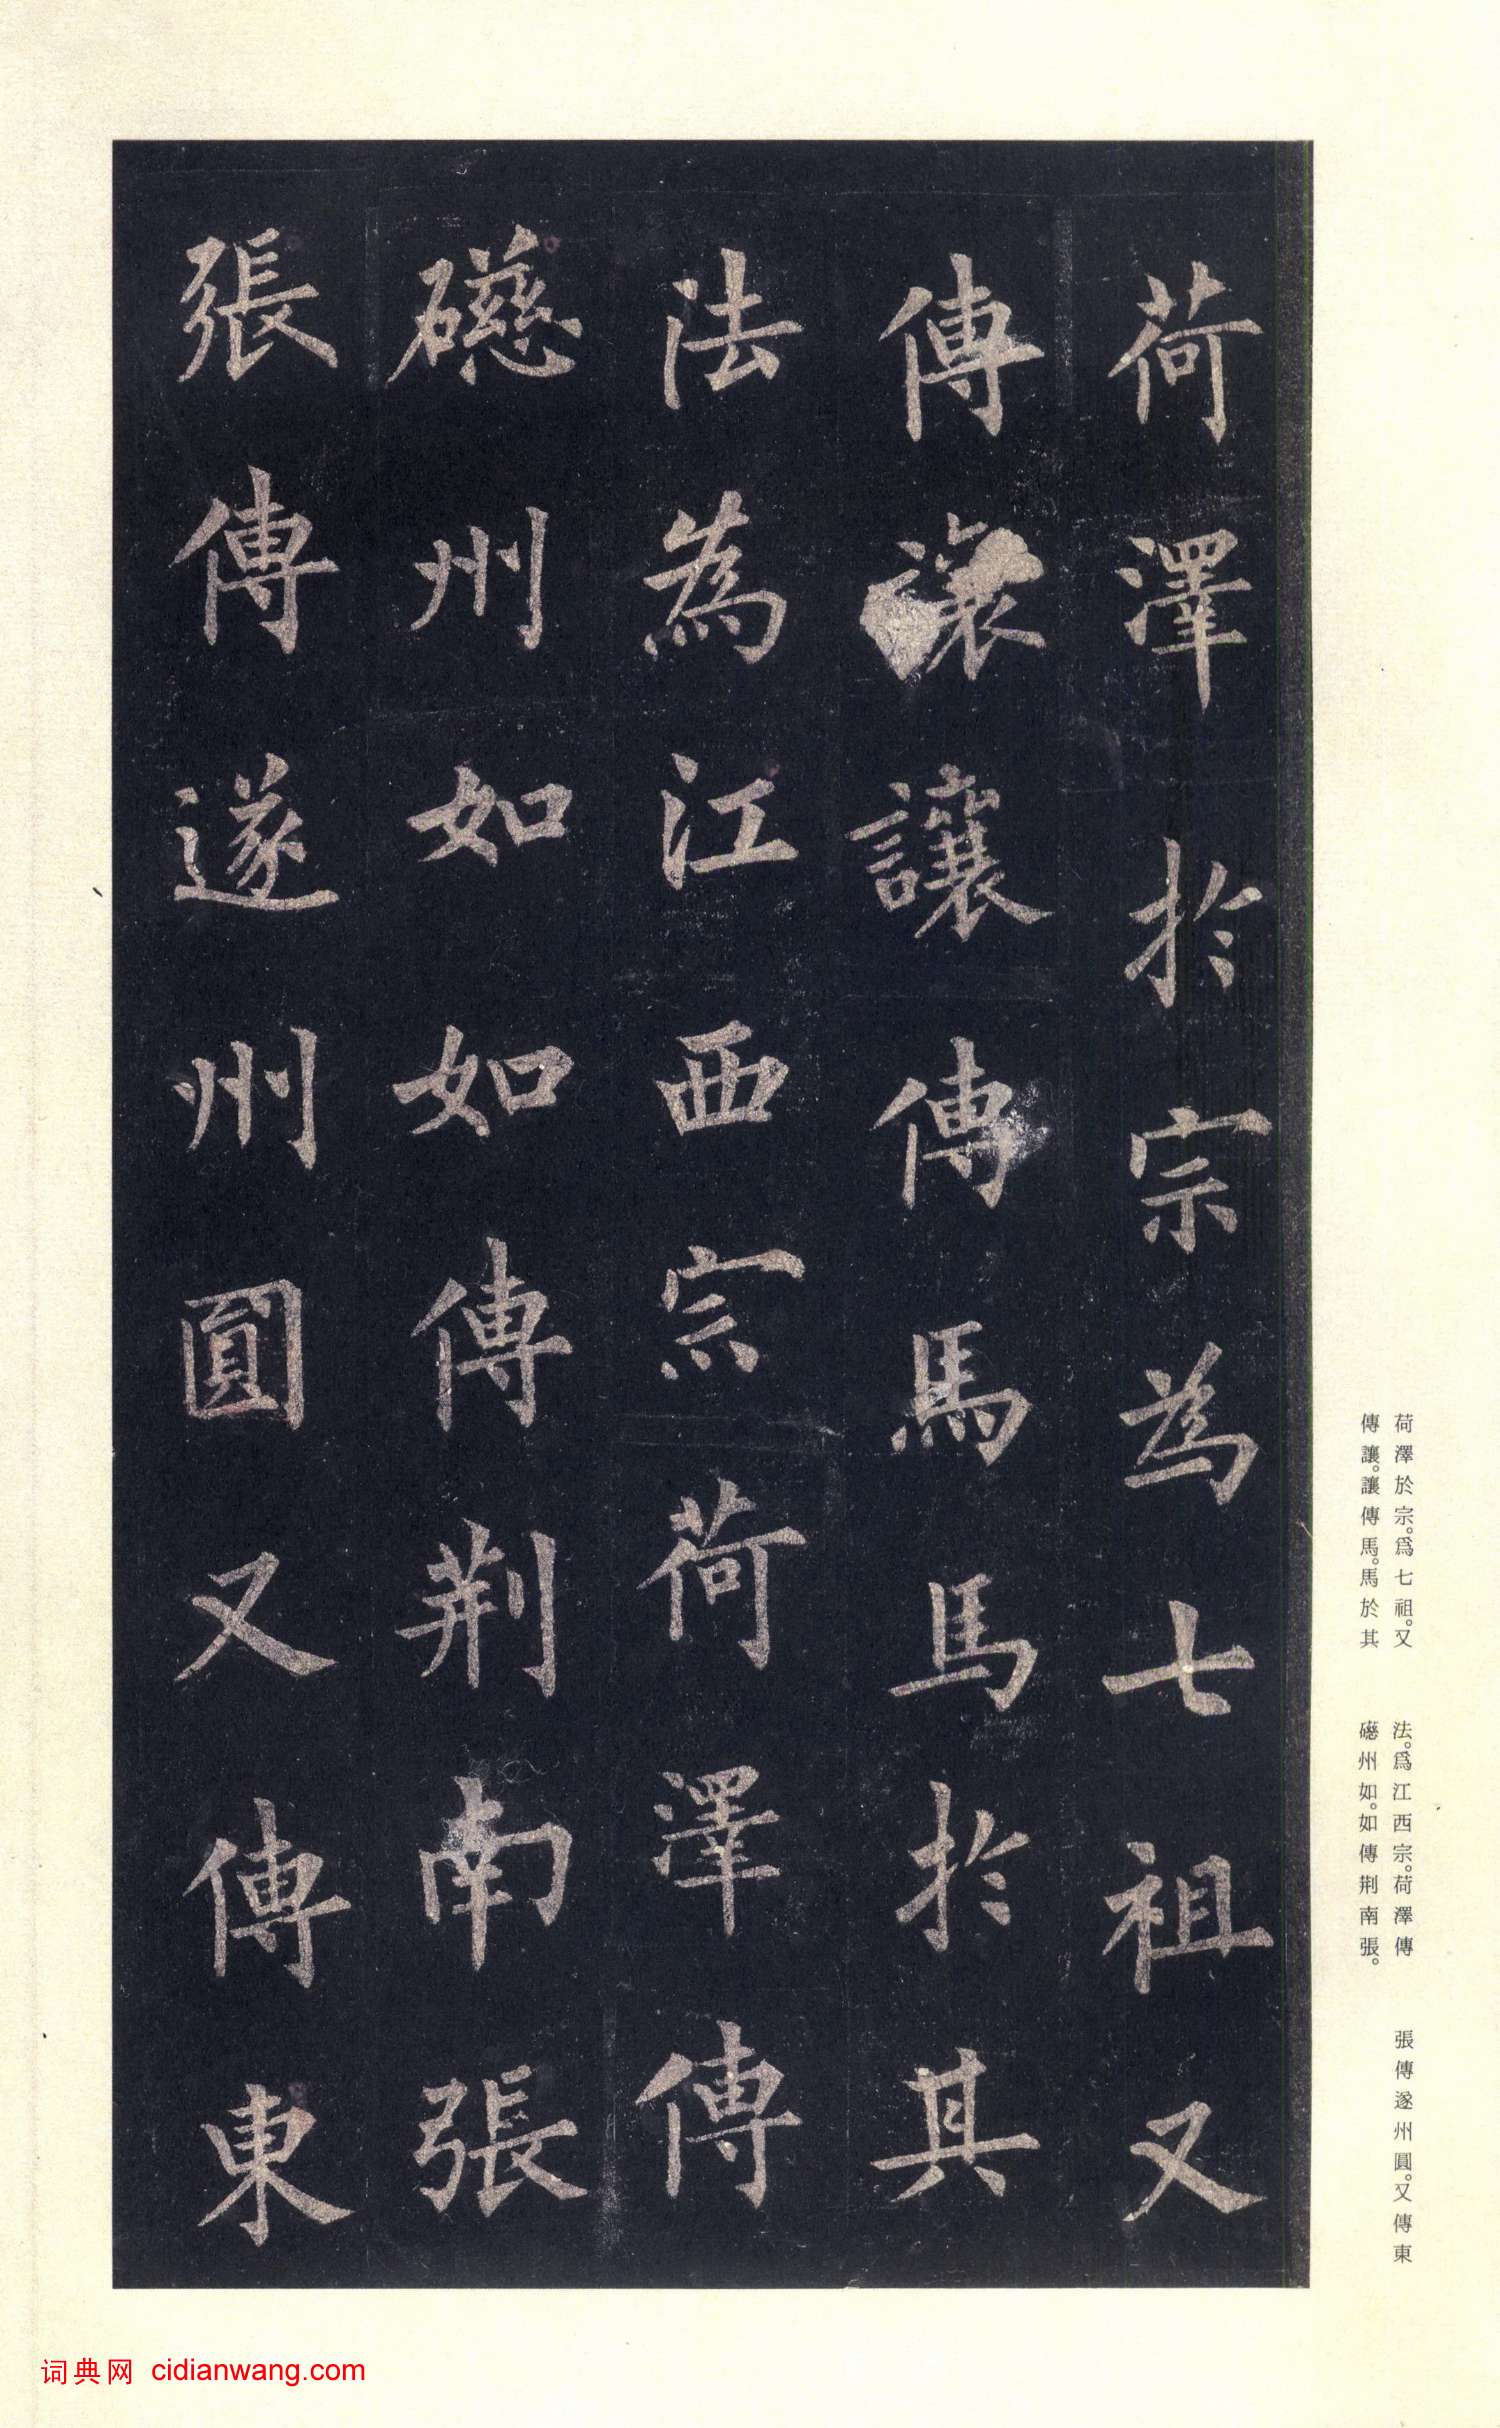 荷澤於宗為七祖又
傳讓讓傳馬馬於其
法為江西宗荷澤傳
礠州如如傳荆南張
張傳遂州圓又傳東
荷澤於宗。爲七祖。又
傳讓。讓傳馬。馬於其
法。爲江西宗。荷澤傳
礠州如。如傳荆南張。
張傳遂州圓。又傳東
词典网 cidianwang.com